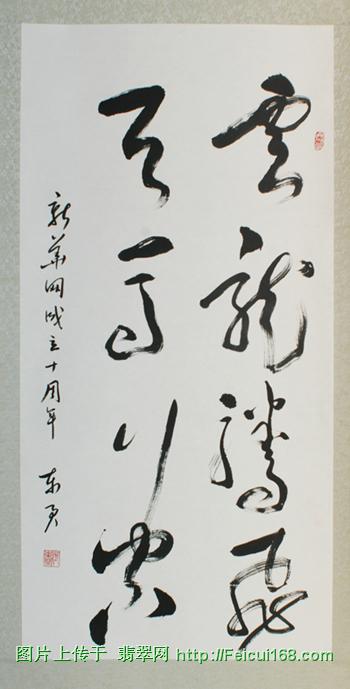 雲龍騰飛
天馬行空
新華网成立十周年
图片上传于 翡翠网 http://Feicui168.com